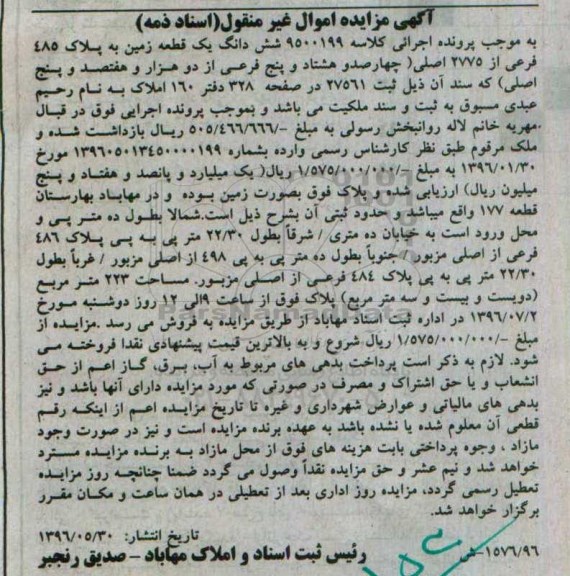 آگهی مزایده اموال غیر منقول(اسناد ذمه)
به موجب پرونده اجرائی کلاسه ۹۵۰۰۱۹۹ شش دانگ یک قطعه زمین به پلاک ۴۸۵
فرعی از ۲۷۷۵ اصلی( چهارصدو هشتاد و پنج فرعی از دو هزار و هفتصد و پنج
اصلی) که سند آن ذیل ثبت ۲۷۵۶۱ در صفحه ۳۲۸ دفتر ۱۶۰ املاک به نام رحیم
عبدی مسبوق به ثبت و سند ملکیت می باشد و بموجب پرونده اجرایی فوق در قبال
مهریه خانم لاله روانبخش رسولی به مبلغ -/۵۰۵/۴۶۶/۶۶۶ ریال بازداشت شده و
ملک مرقوم طبق نظر کارشناس رسمی وارده بشماره ۱۳۹۶۰۵۰۱۳۴۵۰۰۰۰۱۹۹ مورخ
۱۳۹۶/۰۱/۳۰ به مبلغ -/۱/۵۷۵/۰۰۰/۰۰۰ ریال( یک میلیارد و پانصد و هفتاد و پنج
میلیون ریال) ارزیابی شده و پلاک فوق بصورت زمین بوده و در مهاباد بهارستان
قطعه ۱۷۷ واقع میباشد و حدود ثبتی آن بشرح ذیل است.شمالا بطول ده متر پی و
محل ورود است به خیابان ده متری / شرقاً بطول ۲۲/۳۰ متر پی به پی پلاک ۴۸۶
فرعی از اصلی مزبور / جنوباً بطول ده متر پی به پی ۴۹۸ از اصلی مزبور / غرباً بطول
۲۲/۳۰ متر پی به پی پلاک ۴۸۴ فرعی از اصلی مزبور. مساحت ۲۲۳ متر مربع
(دویست و بیست و سه متر مربع) پلاک فوق از ساعت ۹الی ۱۲ روز دوشنبه مورخ
۱۳۹۶/۰۷/۲ در اداره ثبت اسناد مهاباد از طریق مزایده به فروش می رسد .مزایده از
مبلغ -/۱/۵۷۵/۰۰۰/۰۰۰ ریال شروع و به بالاترین قیمت پیشنهادی نقدا فروخته می
شود. لازم به ذکر است پرداخت بدهی های مربوط به آب، برق، گاز اعم از حق
انشعاب و یا حق اشتراک و مصرف در صورتی که مورد مزایده دارای آنها باشد و نیز
بدهی های مالیاتی و عوارض شهرداری و غیره تا تاریخ مزایده اعم از اینکه رقم
قطعی آن معلوم شده یا نشده باشد به عهده برنده مزایده است و نیز در صورت وجود
مازاد ، وجوه پرداختی بابت هزینه های فوق از محل مازاد به برنده مزایده مسترد
خواهد شد و نیم عشر و حق مزایده نقداً وصول می گردد ضمنا چنانچه روز مزایده
تعطیل رسمی گردد، مزایده روز اداری بعد از تعطیلی در همان ساعت و مکان مقرر
برگزار خواهد شد.
تاریخ انتشار: ۱۳۹۶/۰۵/۳۰
رئیس ثبت اسناد و املاک مهاباد – صدیق رنجبر
۱۵۷۶/۹۶-ش
ParsNamadData